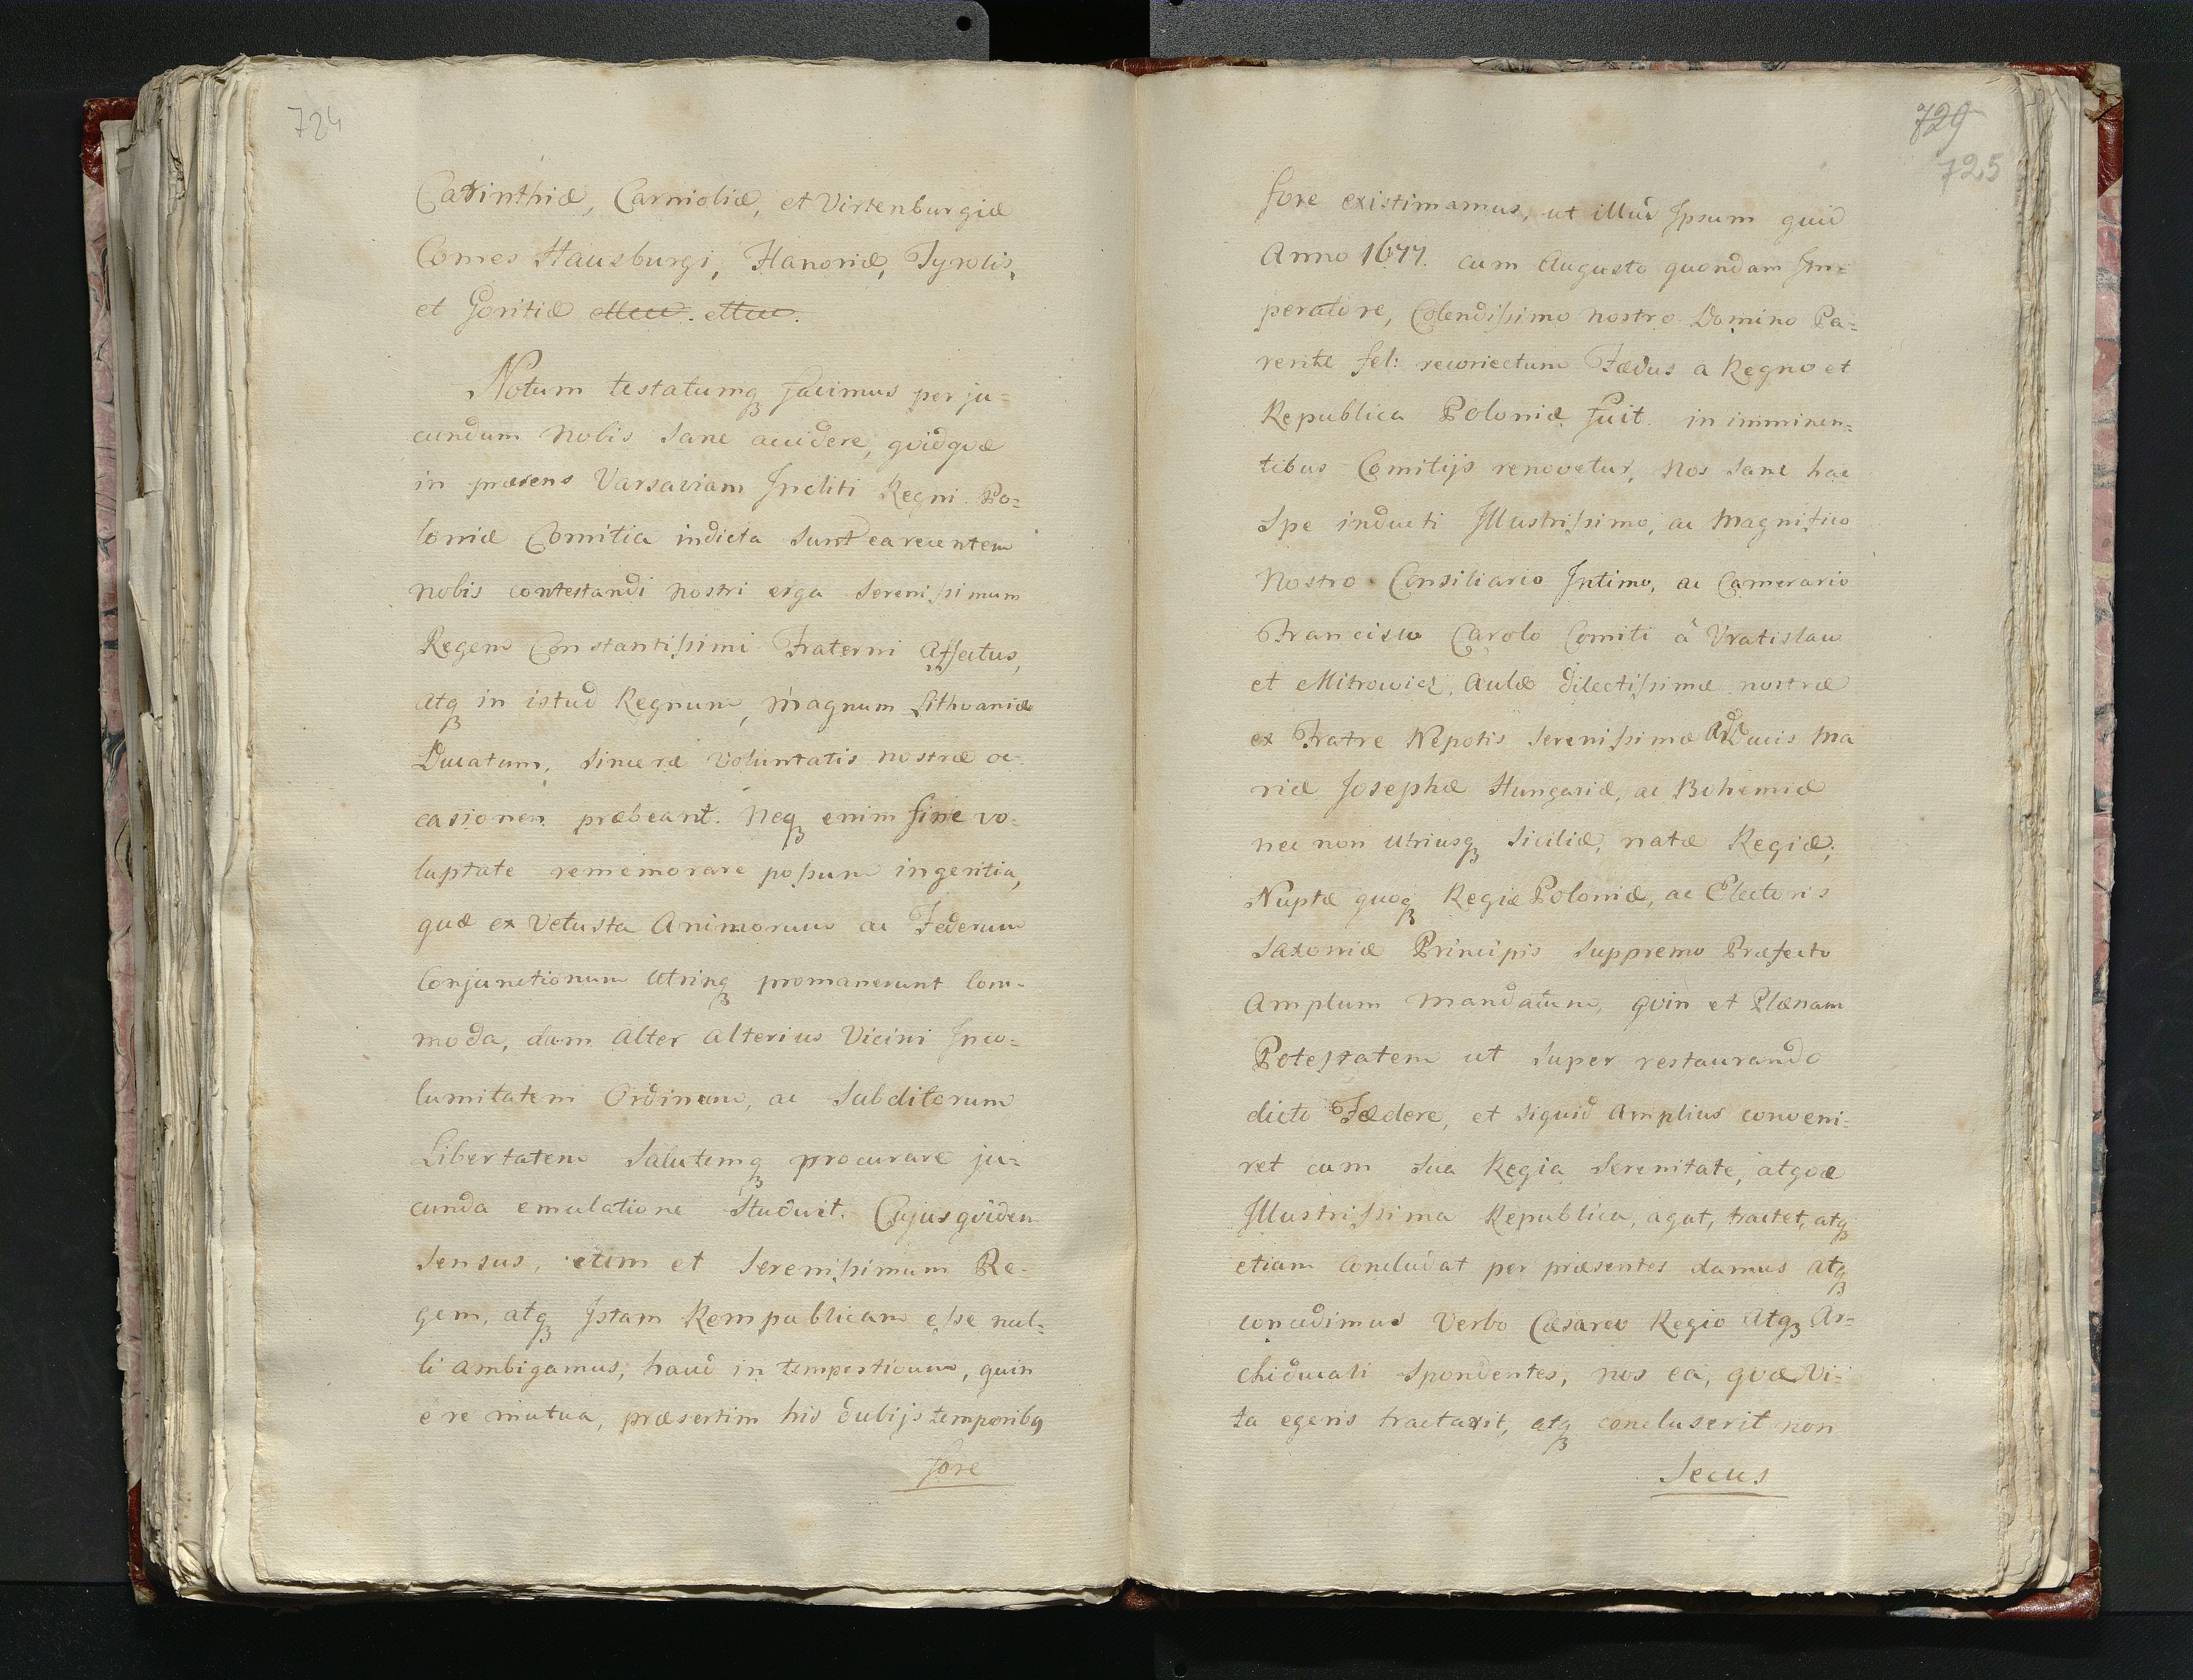 724
Carinthiæ, Carnioliæ, et Virtenburgiæ
Comes Hausburgi, Hanoriæ, Tyrolis,
et Goritiæ
Notum testatumq₃ facimus per ju=
cundum Nobis Sane accidere, qvidqvæ
in præsens Varsaviam Incliti Regni Po=
loniæ Comitia indicta Sunt ea recentem
nobis contestandi nostri erga Serenissimum
Regem Constantissimi Fraterni Affectus,
atq₃ in istud Regnum, Magnum Lithvaniæ
Ducatum, Sinceræ Voluntatis nostræ oc-
casionem præbeant. Neq₃ enim sine vo-
luptate rememorare possum ingentia,
quæ ex Vetusta Animorum ac Federum
Conjunctionum Utrinq₃ promanerunt Com-
moda, dum Alter Alterius Vicini Inco-
lumitatem Ordinum, ac Subditorum
Libertatem Salutemq₃ procurare ju=
cunda emulatione Studuit. Cujus qvidem
Sensus, etim et Serenissimum Re-
gem, atq₃ Istam Rempublicam esse nul=
li Ambigamus, haud in tempestivum, quin
e re mutua, præsertim his dubijs temporibq
fore
729
725
fore existimamus, ut illud Ipsum quid
Anno 1677. cum Augusto quondam Im=
peratore, Colendissimo nostro Domino Pa=
rente fel: recoriectum Fædus a Regno et
Republica Poloniæ Fuit. in imminen=
tibus Comitijs renovetur, Nos Sane hac
Spe inducti Illustrissimo, ac Magnifico
Nostro Consiliario Intimo, ac Camerario
Francisco Carolo Comiti â Vratislau
et Mitrowicz, Aulæ dilectissimæ nostræ
ex Fratre Nepotis Serenissimæ Ad Ducis Ma
riæ Josephæ Hungariæ, ac Bohemiæ
nec non Utriusq₃ Siciliæ, natæ Regiæ,
Nuptæ quoq₃ Regiæ Poloniæ, ac Electoris
Saxoniæ Principis Suppremo Præfecto
Amplum Mandatum, qvin et Plænam
Potestatem ut Super restaurando
dicto Fædere, et Siquid Amplius conveni-
ret cum Sua Regia Serenitate, atqvæ
Illustrissima Republica, agat, tractet, atq₃
etiam Concludat per præsentes damus Atq₃
concedimus Verbo Cæsareo Regio Atq₃ Ar=
chiducali Spondentes, nos ea, qvæ Vi-
ta egeris tractaxit, atq₃ concluserit non
Secus